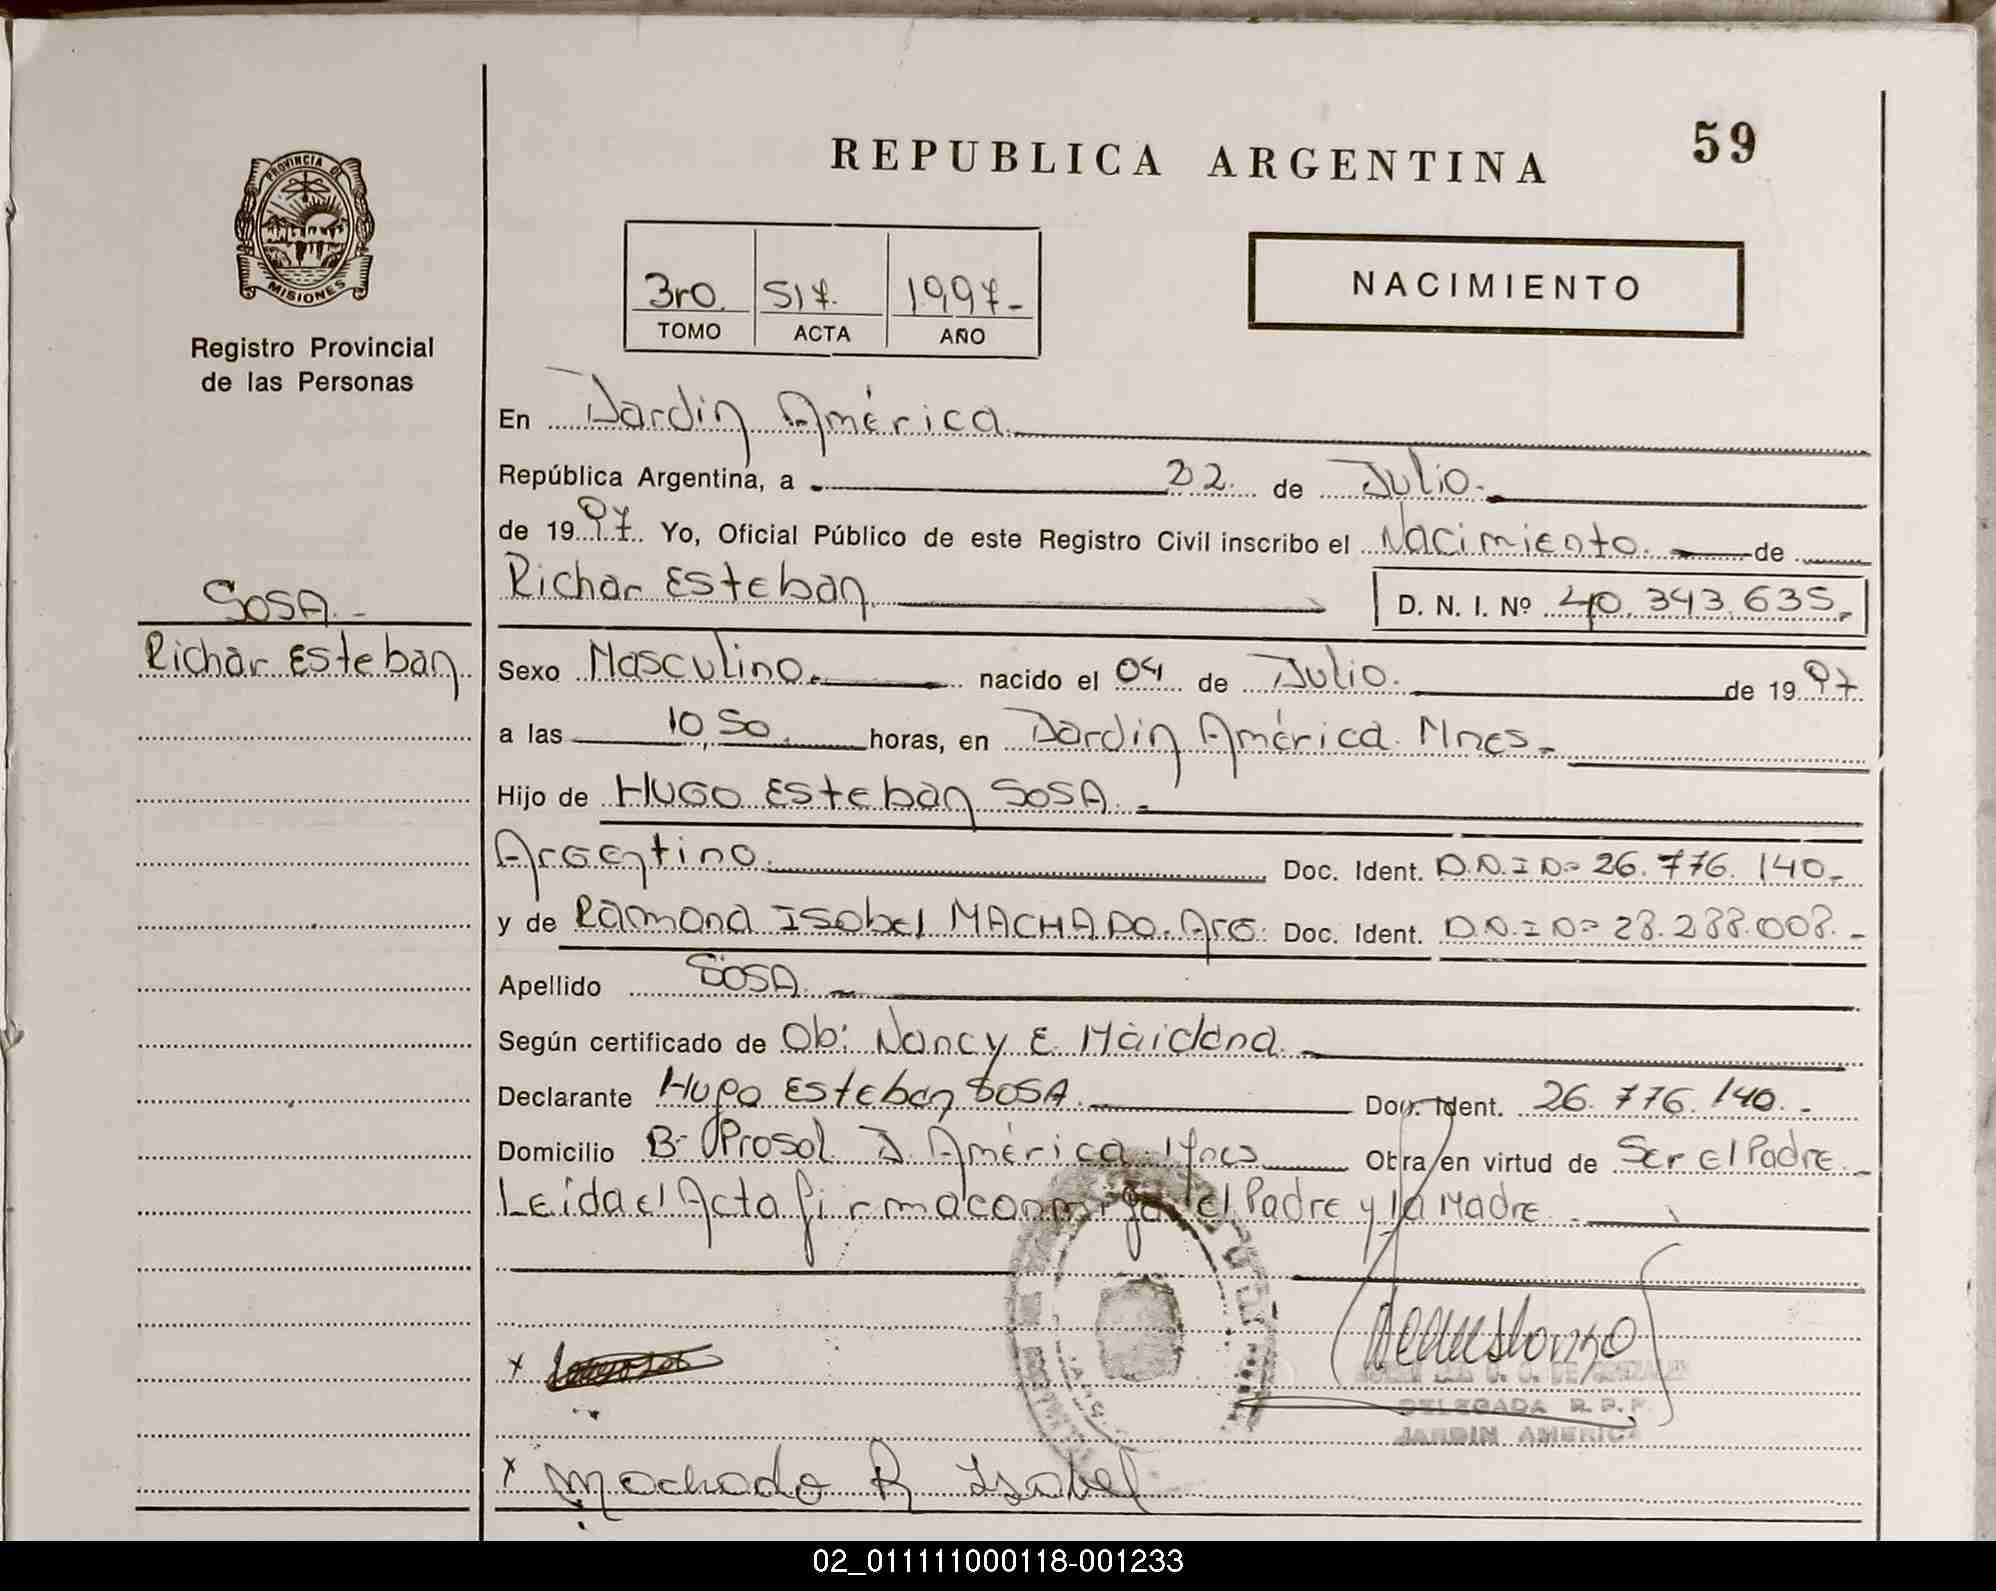 59
REPUBLICA ARGENTINA
PROVINCIA DE
MISIONES
Registro Provincial
de las Personas
3ro. 517. 1997-
TOMO ACTA AÑO
NACIMIENTO
En Jardin América.
República Argentina, a 22. de Julio.
de 1997. Yo, Oficial Público de este Registro Civil inscribo el Nacimiento. de
Richar Esteban D. N. I. Nº 40.343.635.-
SOSA.-
Richar Esteban
Sexo Masculino. nacido el 04 de Julio. de 1997
a las 10,50. horas, en Jardin América. Mnes.-
Hijo de HUGO Esteban SOSA.-
Argentino. Doc. Ident. D.N.I Nº 26.776.140.-
y de Ramona Isabel MACHADO. Arg: Doc. Ident. D.N.I Nº 28.288.008.-
Apellido SOSA.-
Según certificado de Ob: Nancy E. Maidana.
Declarante Hugo Esteban SOSA. Doc. Ident. 26.776.140.-
Domicilio B- Prosol J. América. Mnes Obra en virtud de Ser el Padre.-
Leida el Acta firma conmigo el Padre y la Madre.-
x
DELEGADA R.P.P.
JARDIN AMERICA
x Machado R Isabel
02_011111000118-001233